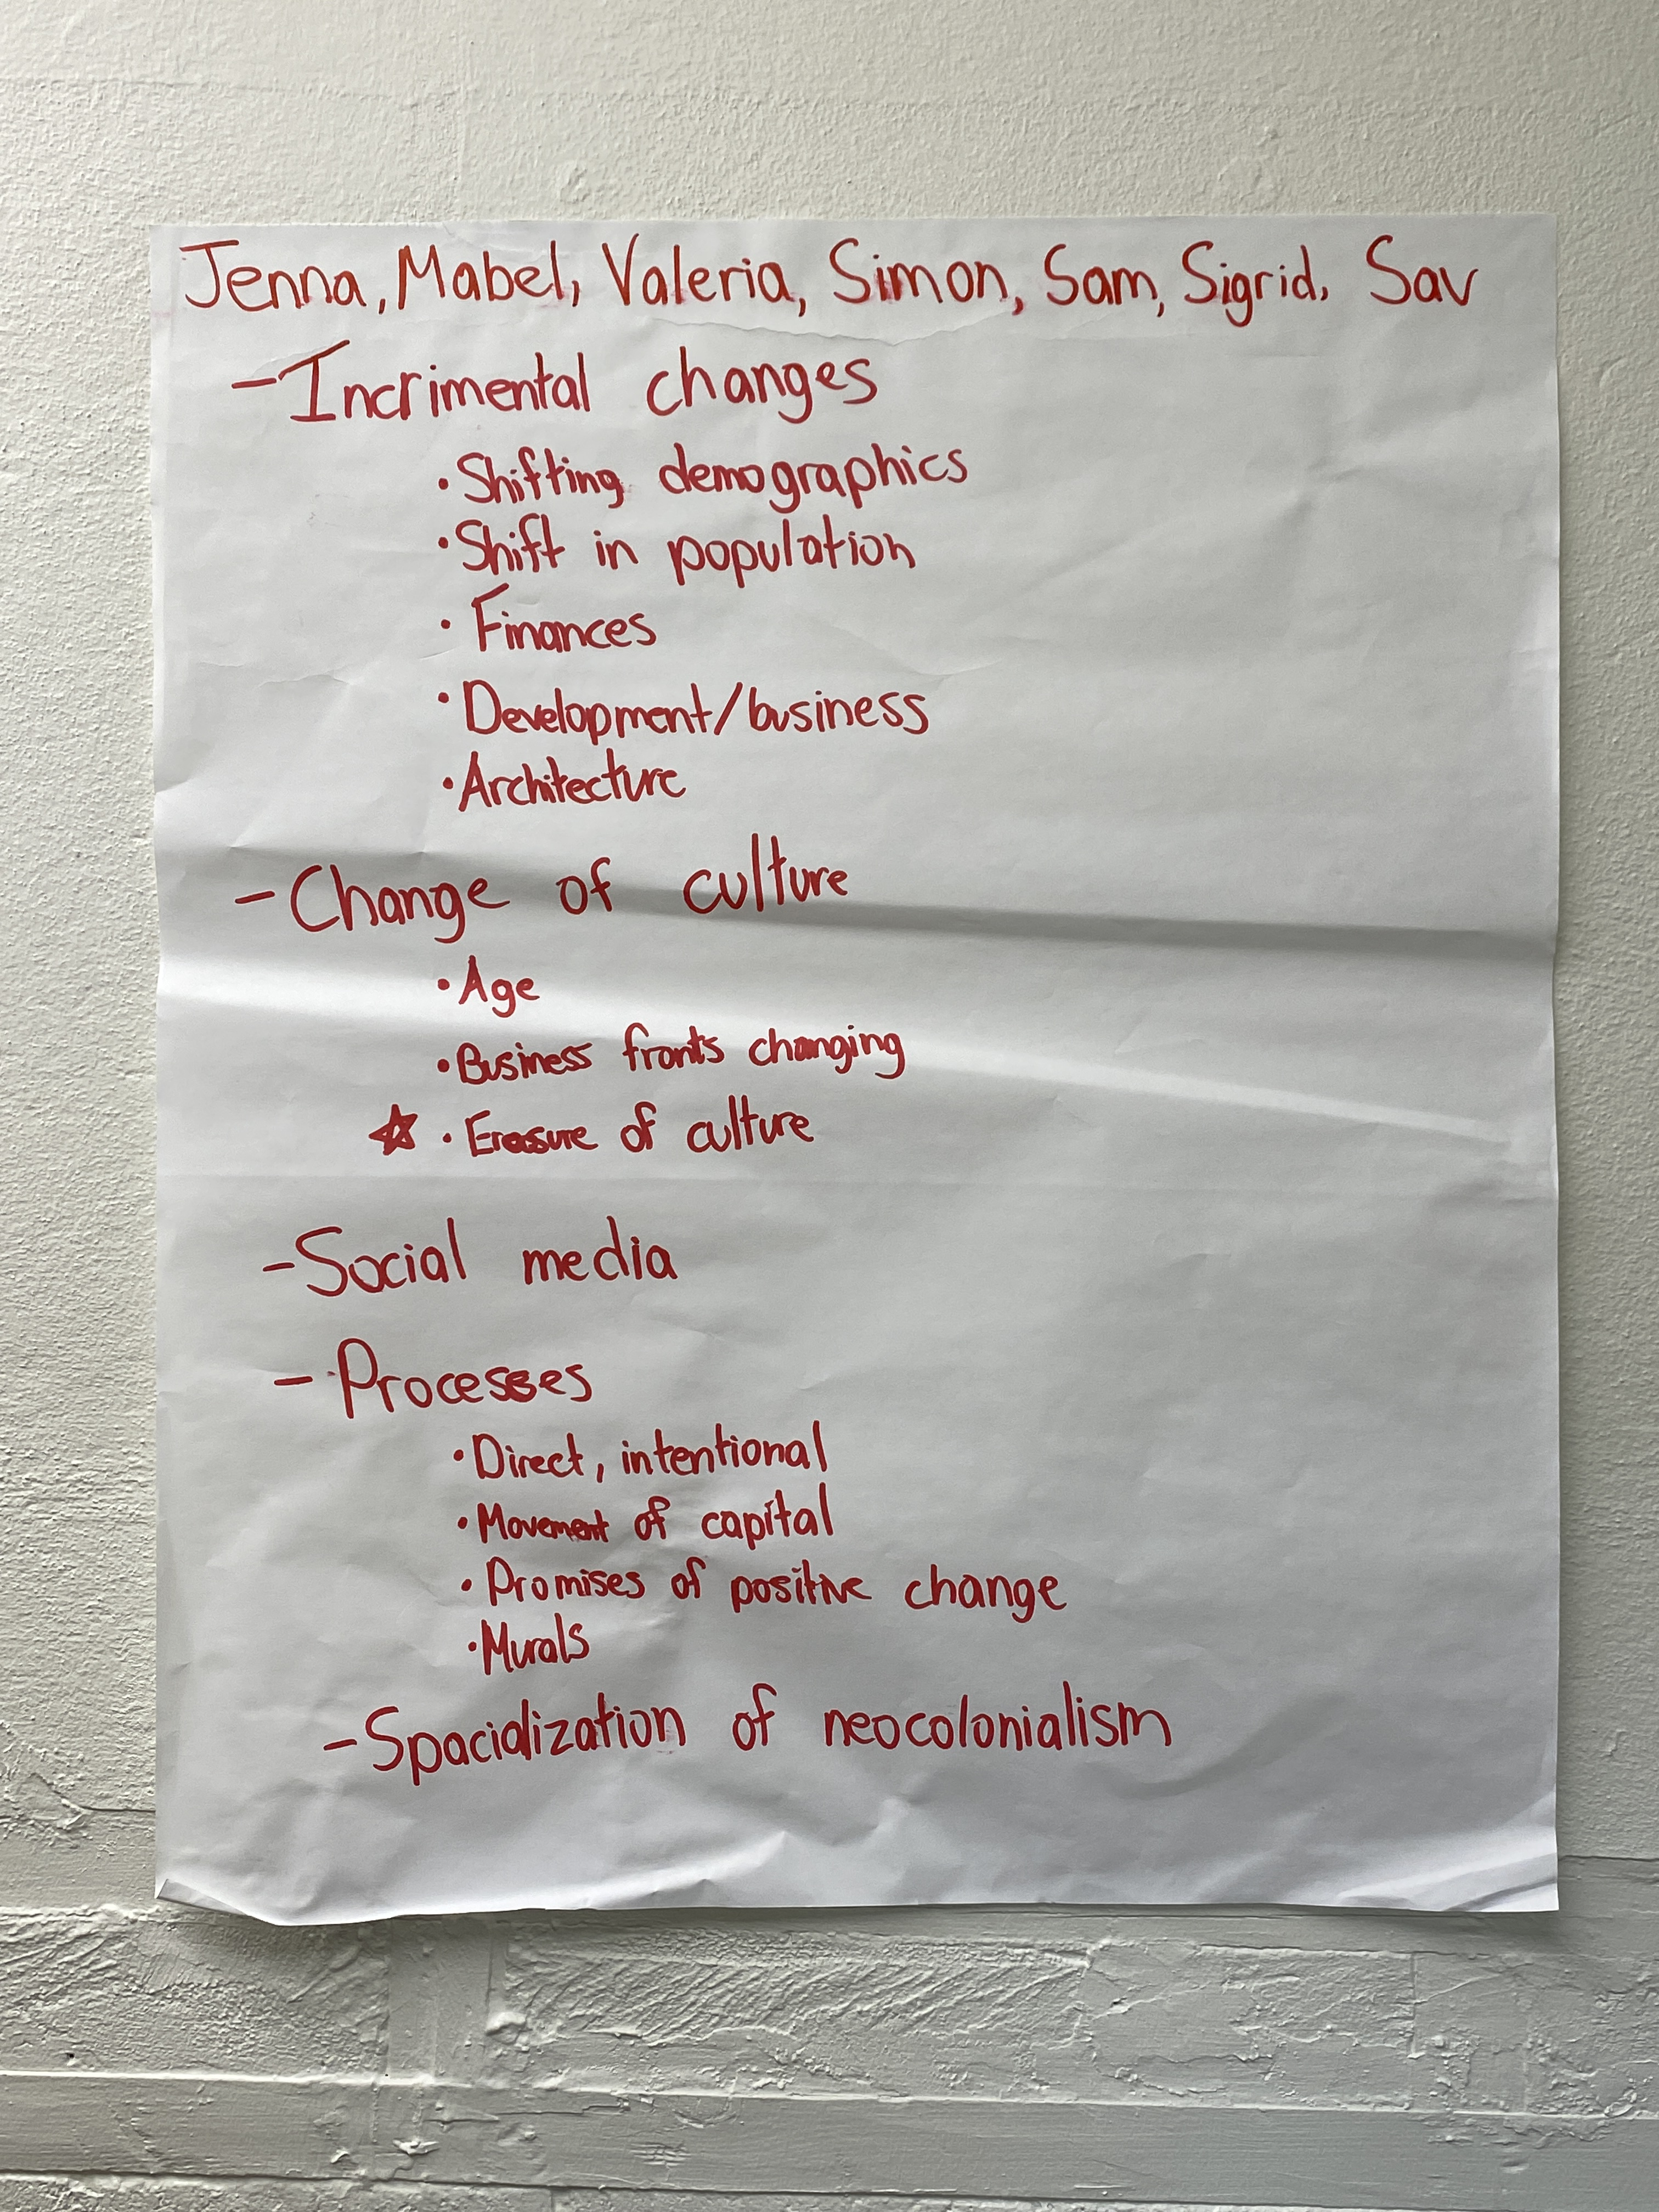 Jenna, Mabel, Valeria, Simon, Sam, Sigrid, Sav
- Incrimental changes
• Shifting demographics
• Shift in population
• Finances
• Development/business
• Architecture
- Change of culture
• Age
• Business fronts changing
☆ • Erasure of culture
- Social media
- Processes
• Direct, intentional
• Movement of capital
• Promises of positive change
• Murals
- Spacialization of neocolonialism